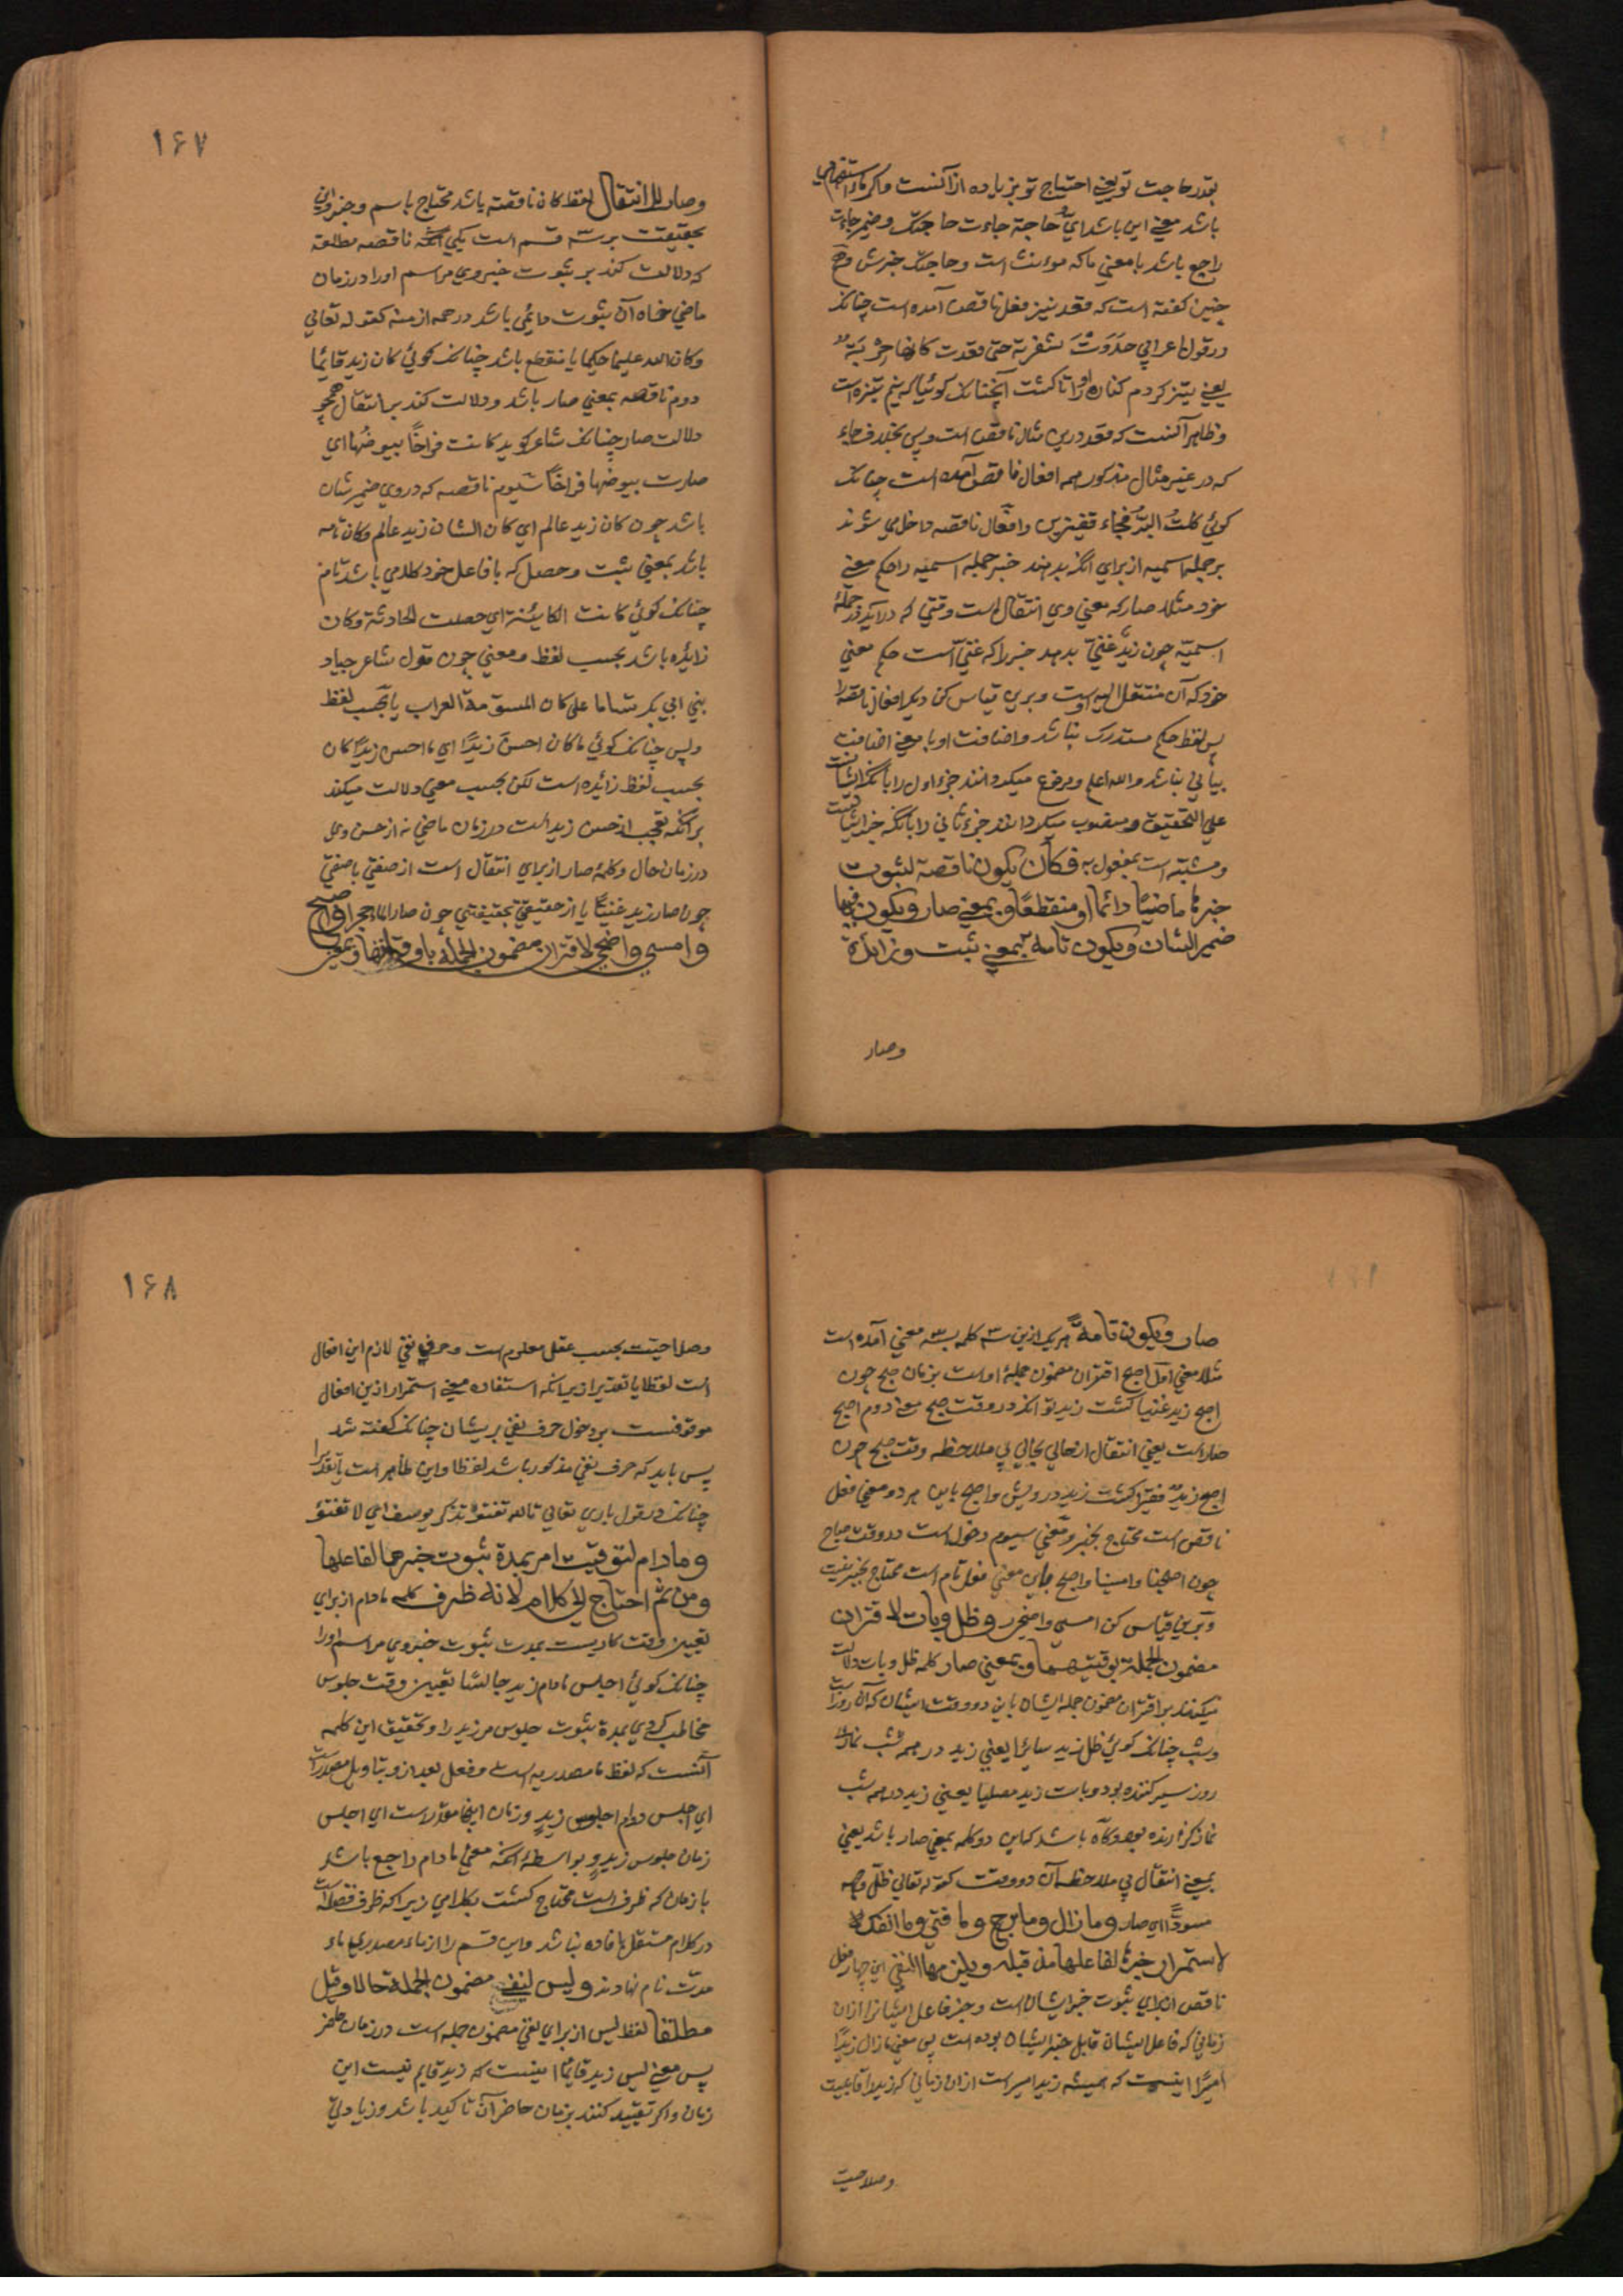 بقدر حاجت تو یعنی احتیاج تو بزیاده ازآنست واکر ماء استفهامی
باشد معنی این باشد ای حاجة جاءت حاجتک وضمیر جاءت
راجع باشد بامعنی ما که مونث است وحاجتک خبرش و
چنین کفته است که قعد نیز فعل ناقص آمده است چنانک
در قول اعرابی حددت شفرته حتی قعدت کانها حربة
یعنی تیز کردم کناره او را تا کشت آنچنانک کوئیا که نیم نیزه است
وظاهر آنست که قعد درین مثال ناقص است وپس بخلاف جاء
که در غیر مثال مذکور هم افعال ناقص آمده است چنانک
کوئی کلت البر فجاء قفیزین وافعال ناقصه داخل می شوند
بر جمله اسمیه از برای انکه بدهند خبر جمله اسمیه را حکم معنی
خود مثلا صار که معنی وی انتقال است وقتی که درآید در جملهٔ
اسمیه چون زید غنی بدهد خبر را که غنی است حکم معنی
خود که آن منتقل الیه اوست وبرین قیاس کن دیکر افعال ناقصه را
پس لفظ حکم مستدرک نباشد واضافت او با معنی اضافت
بیانی نباشد والله اعلم ومرفوع میکردانند جزء اول را بانکه ایشانست
علی التحقیق ومنصوب میکردانند جزء ثانی را بانکه خبر ایشانست
ومشبه است بمفعول به فکان یکون ناقصة لثبوت
خبرها ماضیا دائما او منقطعا وبمعنی صار ویکون فیها
ضمیر الشان ویکون تامة بمعنی ثبت وزایدة
وصار
۱۶۷
وصار للانتقال لفظ کان ناقصه باشد محتاج باسم وخبر واین
بحقیقت بر سه قسم است یکی آنکه ناقصه مطلقه
که دلالت کند بر ثبوت خبر وی مر اسم اورا در زمان
ماضی خواه آن ثبوت دایمی باشد در همه ازمنه کقوله تعالی
وکان الله علیما حکیما یا منقطع باشد چنانک کوئی کان زید قایما
دوم ناقصه بمعنی صار باشد ودلالت کند بر انتقال همچو
دلالت صار چنانک شاعر کوید کانت فراخا بیوضها ای
صارت بیوضها فراخا سیوم ناقصه که در وی ضمیر شان
باشد چون کان زید عالم ای کان الشان زید عالم وکان تامه
باشد بمعنی ثبت وحصل که بافاعل خود کلامی باشد تام
چنانک کوئی کانت الکاینة ای حصلت الحادثة وکان
زایده باشد بحسب لفظ ومعنی چون قول شاعر جیاد
بنی ابی بکر تساما علی کان المسومة العراب یا بحسب لفظ
وبس چنانک کوئی ما کان احسن زیدا ای ما احسن زیدا کان
بحسب لفظ زایده است لکن بحسب معنی دلالت میکند
بر آنکه تعجب از حسن زید است در زمان ماضی نه از حسن وی
در زمان حال وکلمهٔ صار از برای انتقال است از صفتی باصفتی
چون صار زید غنیا یا از حقیقتی بحقیقتی چون صار الماء حجرا واصبح
وامسی واضحی لاقتران مضمون الجملة باوقاتها وبمعنی
صار ویکون تامة هریک ازین سه کلمه بسه معنی آمده است
مثلا معنی اول اصبح اقتران مضمون جملهٔ اوست بزمان صبح چون
اصبح زید غنیا کشت زید توانکر در وقت صبح معنی دوم اصبح
صار است یعنی انتقال از حالی بحالی بی ملاحظه وقت صبح چون
اصبح زید فقیرا کشت زید درویش واصبح باین هر دو معنی فعل
ناقص است محتاج بخبر ومعنی سیوم دخول است در وقت صباح
چون اصبحنا وامسینا واصبح باین معنی فعل تام است محتاج بخبر نیست
وبرین قیاس کن امسی واضحی وظل وبات لاقتران
مضمون الجملة بوقتیهما وبمعنی صار کلمه ظل وبات دلالت
میکنند بر اقتران مضمون جمله ایشان باین دو وقت ایشان که آن روز است
وشب چنانک کوئی ظل زید سائرا یعنی زید در همه
روز سیر کننده بود وبات زید مصلیا یعنی زید در همه شب
نماز کزارنده بود وکاه باشد که این دو کلمه بمعنی صار باشد یعنی
بمعنی انتقال بی ملاحظه آن دو وقت کقوله تعالی ظل وجهه
مسودا ای صار وما زال وما برح وما فتئ وما انفک
لاستمرار خبرها لفاعلها مذ قبله ویلزمها النفی این چهار فعل
ناقص از برای ثبوت خبر ایشان است وخبر فاعل ایشانرا از آن
زمانی که فاعل ایشان قابل خبر ایشان بوده است پس معنی ما زال زید
امیرا اینست که همیشه زید امیر است از آن زمانی که زید را قابلیت
وصلاحیت
۱۶۸
وصلاحیت بحسب عقل معلوم است وحرف نفی لازم این افعال
است لفظا یا تقدیرا زیرا که استفاده معنی استمرار ازین افعال
موقوفست بر دخول حرف نفی بریشان چنانک کفته شد
پس باید که حرف نفی مذکور باشد لفظا واین ظاهر است یا تقدیرا
چنانک در قول باری تعالی تالله تفتؤ تذکر یوسف ای لا تفتؤ
وما دام لتوقیت امر بمدة ثبوت خبرها لفاعلها
ومن ثم احتاج الی کلام لانه ظرف کلمه مادام از برای
تعیین وقت کاریست بمدت ثبوت خبر وی مر اسم اورا
چنانک کوئی اجلس مادام زید جالسا تعیین وقت جلوس
مخاطب کردی بمدة ثبوت جلوس مر زید را وتحقیق این کلمه
آنست که لفظ ما مصدریه است وفعل بعد از و بتاویل مصدر است
ای اجلس دوام جلوس زید وزمان اینجا مقدر است ای اجلس
زمان جلوس زید و بواسطهٔ آنکه معنی مادام راجع باشد
بازمان که ظرف است محتاج کشت بکلامی زیرا که ظرف فضله است
در کلام مستقل بافاده نباشد واین قسم را از ماء مصدریه ماء
مدت نام نهادند ولیس لنفی مضمون الجملة حالا وقیل
مطلقا لفظ لیس از برای نفی مضمون جمله است در زمان حاضر
پس معنی لیس زید قایما اینست که زید قایم نیست این
زمان واکر تقیید کنند بزمان حاضر آن تاکید باشد وزیادتی